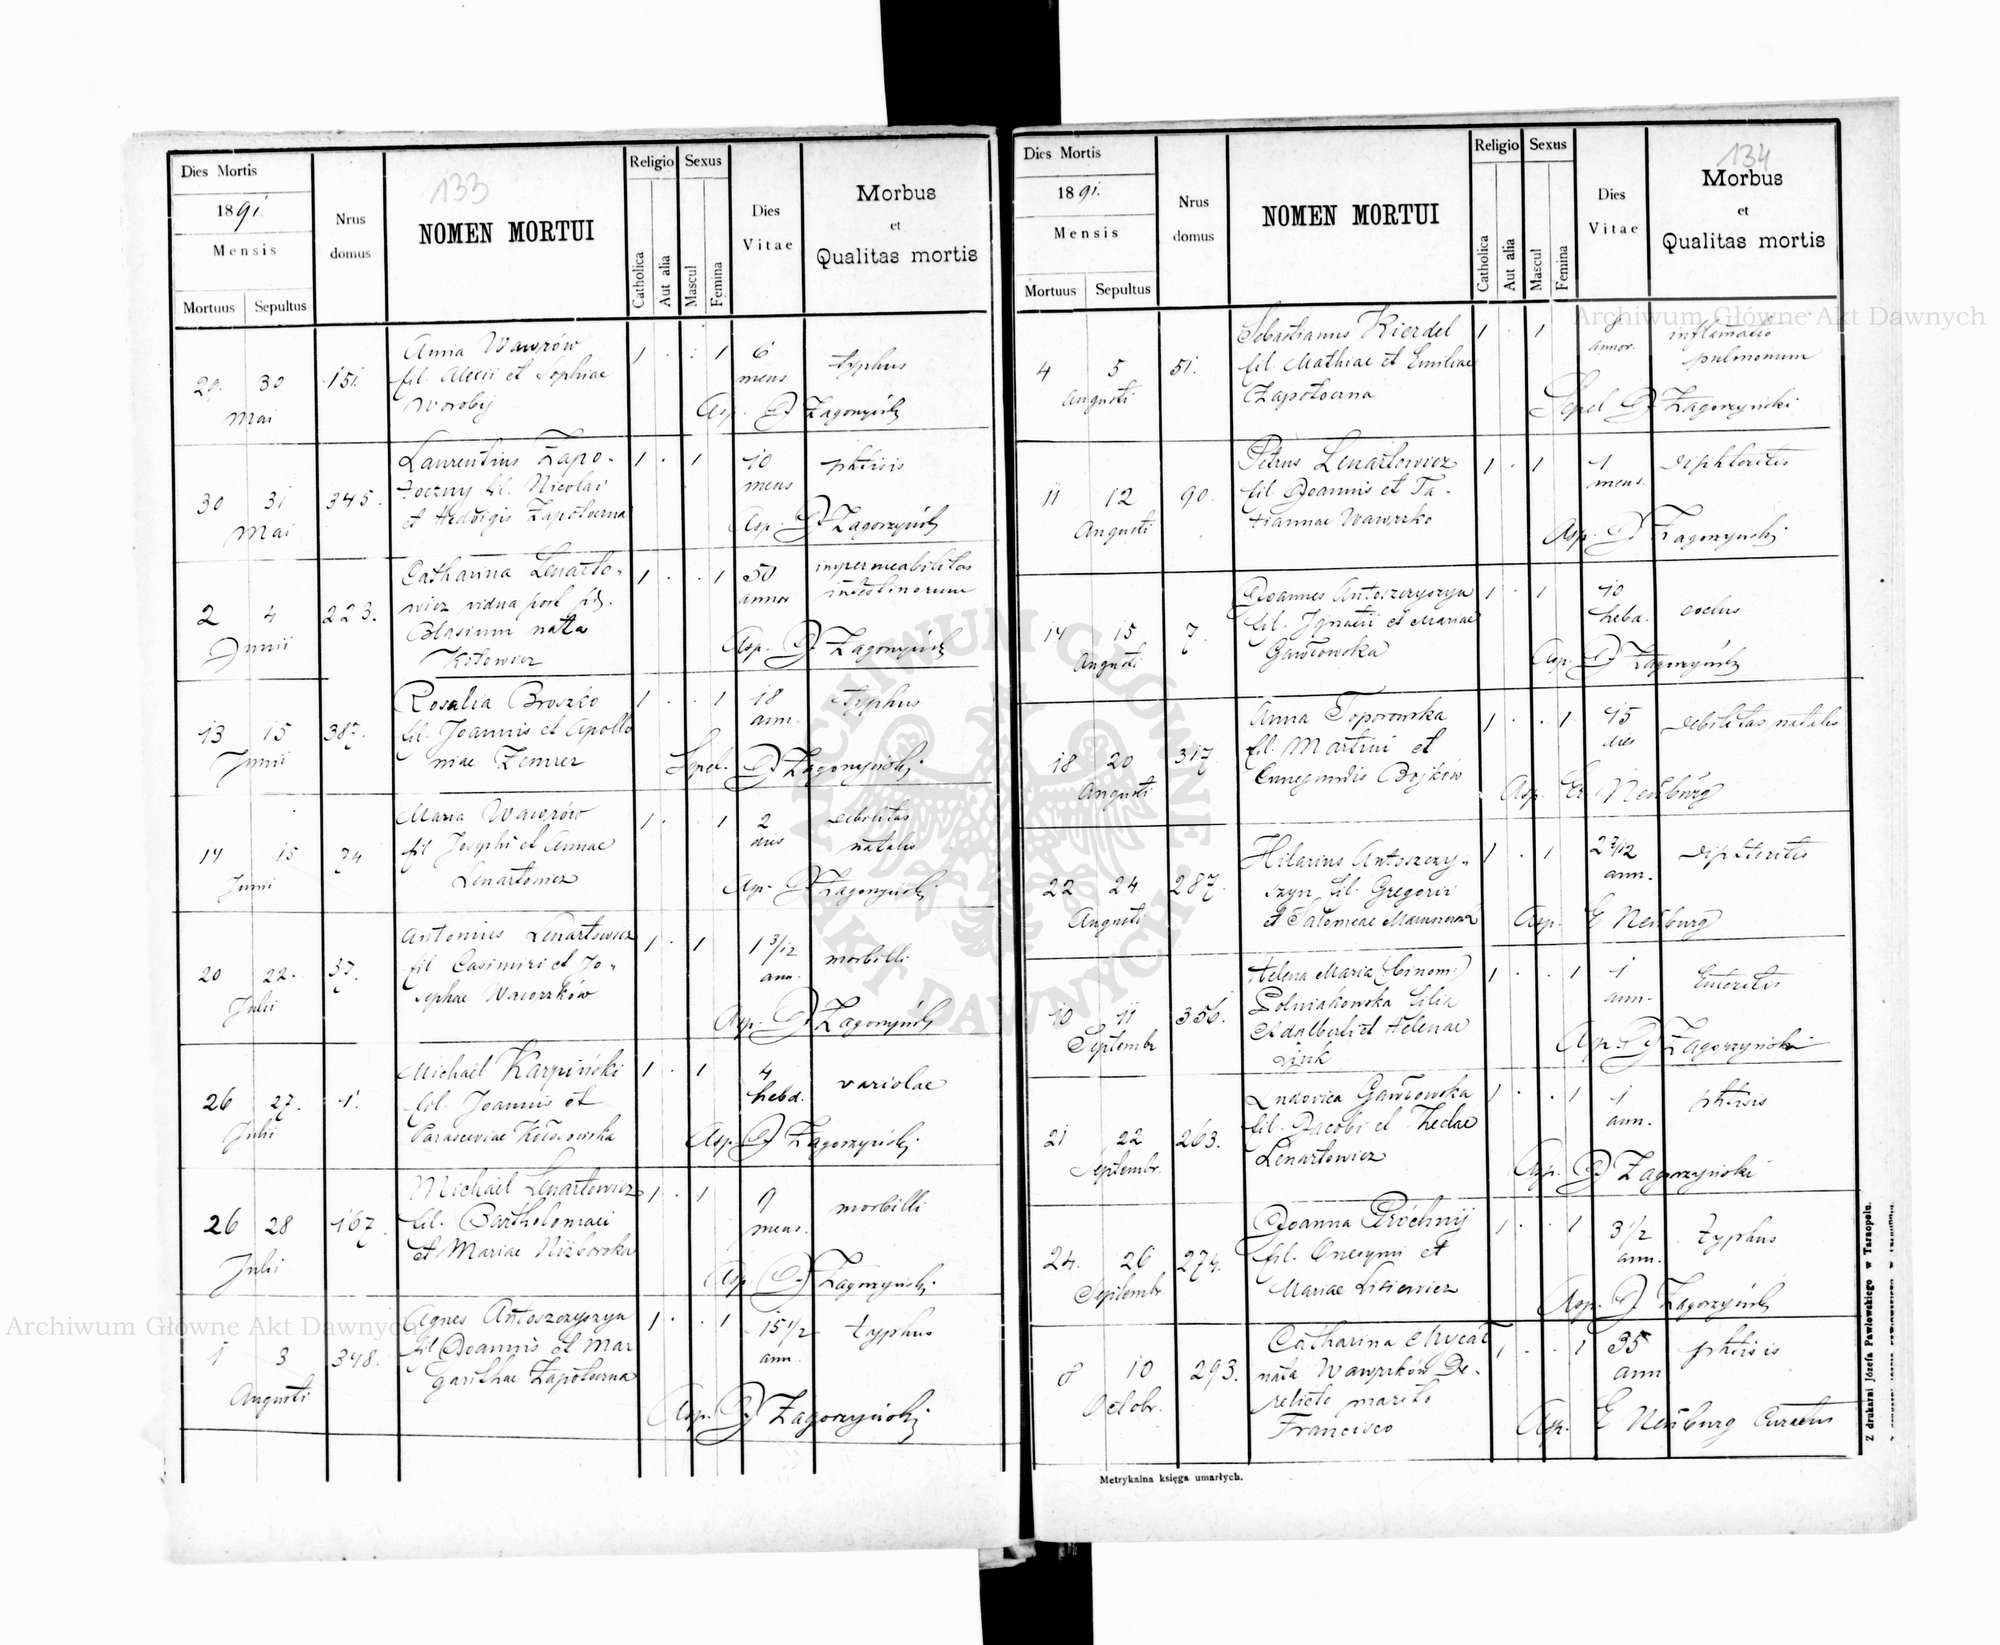 133
Dies Mortis
1891.
Mensis
Mortuus Sepultus
Nrus domus
NOMEN MORTUI
Religio
Catholica
Aut alia
Sexus
Mascul
Femina
Dies Vitae
Morbus
et
Qualitas mortis
29. 30 Mai 151.
Anna Wawrów
fil. Alexii et Sophiae
Worobij
1 . . 1
6 mens
typhus
Asp. J Zagorzyński
30 31 Mai 345.
Laurentius Zapo-
toczny fil. Nicolai
et Hedvigis Zapotoczna
1 . 1
10 mens
phtisis
Asp. J Zagorzyński
2 4 Junii 223.
Catharina Lenarto-
wicz vidua post
Blasium nata
Kitowicz
1 . . 1
50 annor
impermeabilitas
intestinorum
Asp. J Zagorzyński
13 15 Junii 387.
Rosalia Broszko
fil. Joannis et Apollo
niae Zemrer
1 . . 1
18 ann.
typhus
Sepel. J Zagorzyński
14 15 Junii 74
Maria Wawrów
fil Josephi et Annae
Lenartowicz
1 . . 1
2 dies
debilitas
natalis
Asp. J Zagorzyński
20 22. Julii 37.
Antonius Lenartowicz
fil Casimiri et Jo-
sephae Wawrzków
1 . 1
1 3/12 ann.
morbilli
Asp. J Zagorzyński
26 27. Julii 1.
Michael Karpiński
fil. Joannis et
Parasceviae
1 . 1
4 hebd.
variolae
Asp. J Zagorzyński
26 28 Julii 167.
Michael Lenartowicz
fil. Bartholomaei
et Mariae Niżborska
1 . 1
9 mens.
morbilli
Asp J Zagorzyński
1 3 Augusti 348.
Agnes Antoszczyszyn
fil Joannis et Mar
garithae Zapotoczna
1 . . 1
15 1/2 ann.
typhus
Asp. J Zagorzyński
134
Dies Mortis
1891.
Mensis
Mortuus Sepultus
Nrus domus
NOMEN MORTUI
Religio
Catholica
Aut alia
Sexus
Mascul
Femina
Dies Vitae
Morbus
et
Qualitas mortis
4 5 Augusti 51.
Sebastianus Kierdel
fil. Mathiae et Emiliae
Zapotoczna
1 . 1
annor.
inflamatio
pulmonum
Sepel J Zagorzyński
11 12 Augusti 90.
Petrus Lenartowicz
fil Joannis et Ta-
tiannae Wawrzko
1 . 1
1 mens.
diphteritis
Asp. J Zagorzyński
14 15 Augusti 7.
Joannes Antoszczyszyn
fil. Ignatii et Mariae
Gawłowska
1 . 1
10 hebd.
Asp. J Zagorzyński
18 20 Augusti 317
Anna Toporowska
fil. Martini et
Cunegundis Bojków
1 . . 1
15 dies
debilitas natalis
Asp. E Neüburg
22 24 Augusti 287.
Hilarius Antoszczy-
szyn fil. Gregorii
et Salomeae
1 . 1
2 7/12 ann.
diphteritis
Asp. E Neüburg
10 11 Septembr 356.
Helena Maria (binom)
Polniakowska filia
Adalberti et Helenae
Link
1 . . 1
1 ann.
Enteritis
Asp. J Zagorzyński
21 22 Septembr. 263.
Ludovica Gawłowska
fil. Jacobi et Theclae
Lenartowicz
1 . . 1
1 ann.
phtisis
Asp. J Zagorzyński
24. 26 Septembr. 274.
Joanna Próchnij
fil. Onesymi et
Mariae Lisiewicz
1 . . 1
3 1/2 ann.
typhus
Asp. J. Zagorzyński
8 10 Octobr. 293.
Catharina Mycał
nata Wawrzków De-
relicto marito
Francisco
1 . . 1
35 ann
phtisis
Asp. E Neüburg Curatus
Metrykalna księga umarłych.
Z drukarni Józefa Pawłowskiego w Tarnopolu.
Archiwum Główne Akt Dawnych
Archiwum Główne Akt Dawnych
ARCHIWUM GŁÓWNE AKT DAWNYCH